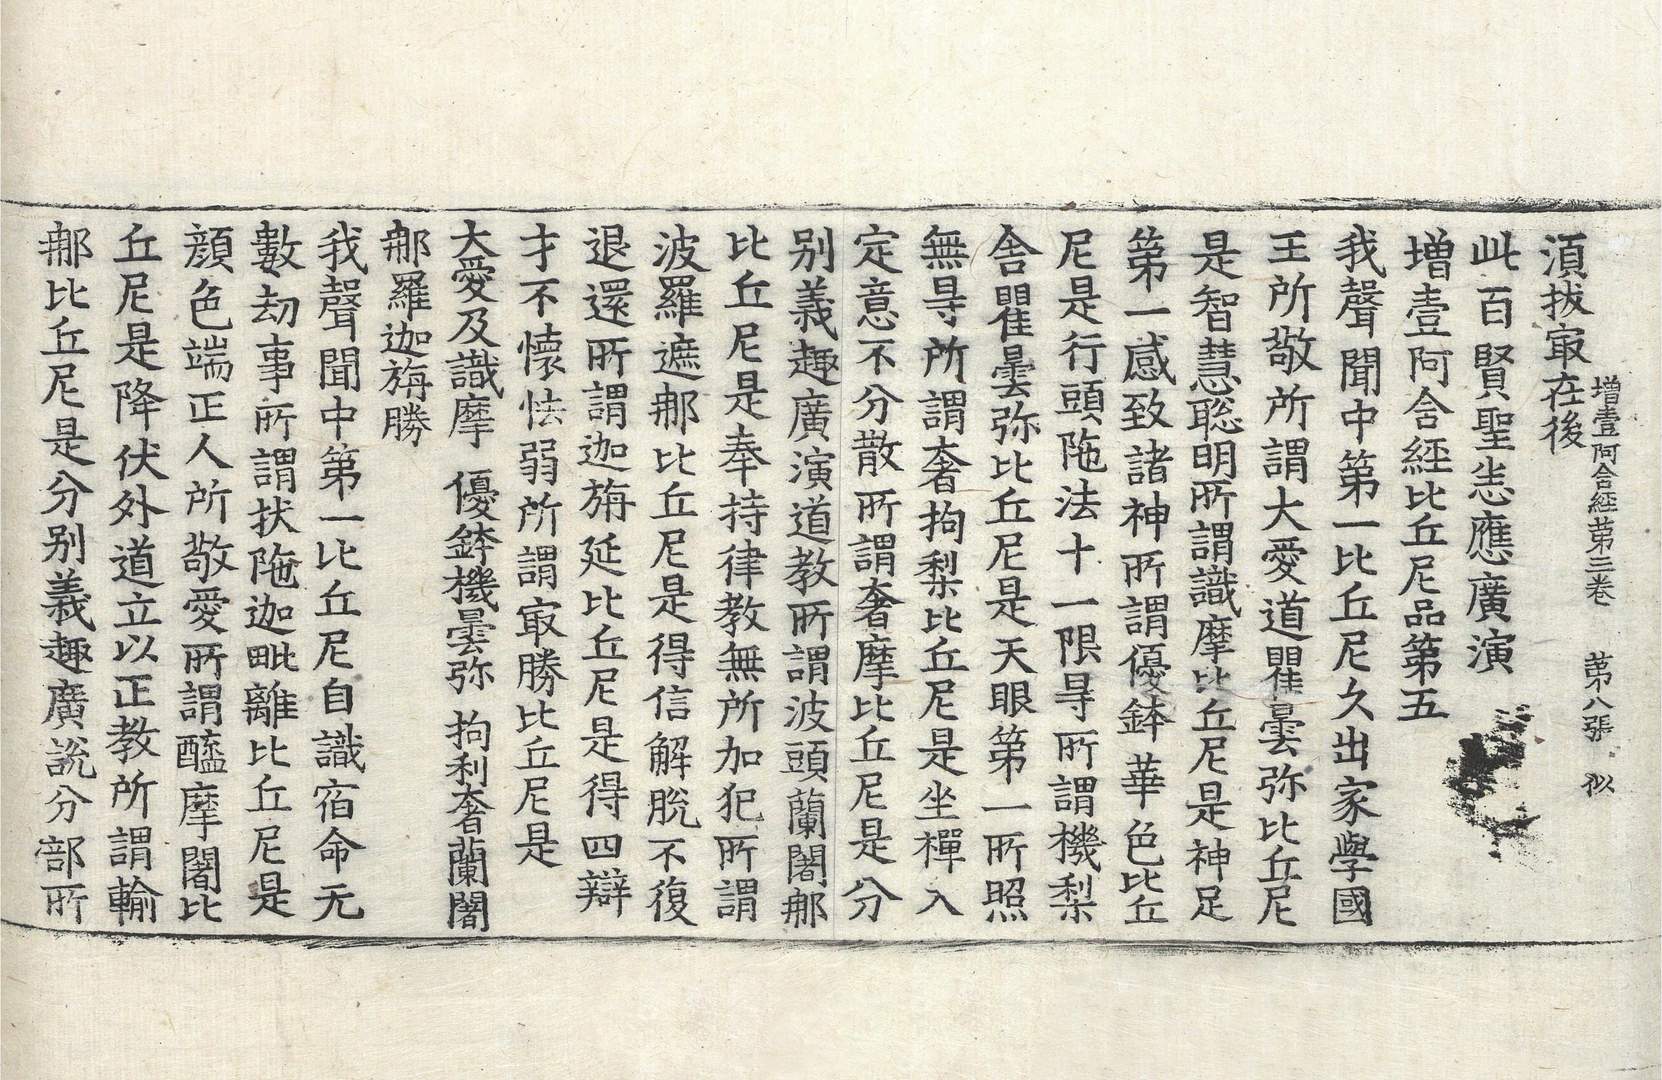 增壹阿含經苐三卷　苐八張　似
湏拔㝡在後
此百賢聖恚應廣演
增壹阿含經比丘尼品第五
我聲聞中第一比丘尼久出家學國
王所敬所謂大愛道瞿曇弥比丘尼
是智慧聡明所謂識摩比丘尼是神足
第一感致諸神所謂優鉢華色比丘
尼是行頭陁法十一限㝵所謂機梨
舍瞿曇弥比丘尼是天眼第一所照
無㝵所謂奢拘梨比丘尼是坐禪入
定意不分散所謂奢摩比丘尼是分
別義趣廣演道教所謂波頭蘭闍郍
比丘尼是奉持律教無所加犯所謂
波羅遮郍比丘尼是得信解脫不復
退還所謂迦旃延比丘尼是得四辯
才不懷怯弱所謂㝡勝比丘尼是
大愛及識摩　優鉢機曇弥　拘利奢蘭闍
郍羅迦旃勝
我聲聞中第一比丘尼自識宿命无
數劫事所謂拔陁迦毗離比丘尼是
顔色端正人所敬愛所謂醯摩闍比
丘尼是降伏外道立以正教所謂輸
郍比丘尼是分別義趣廣說分部所